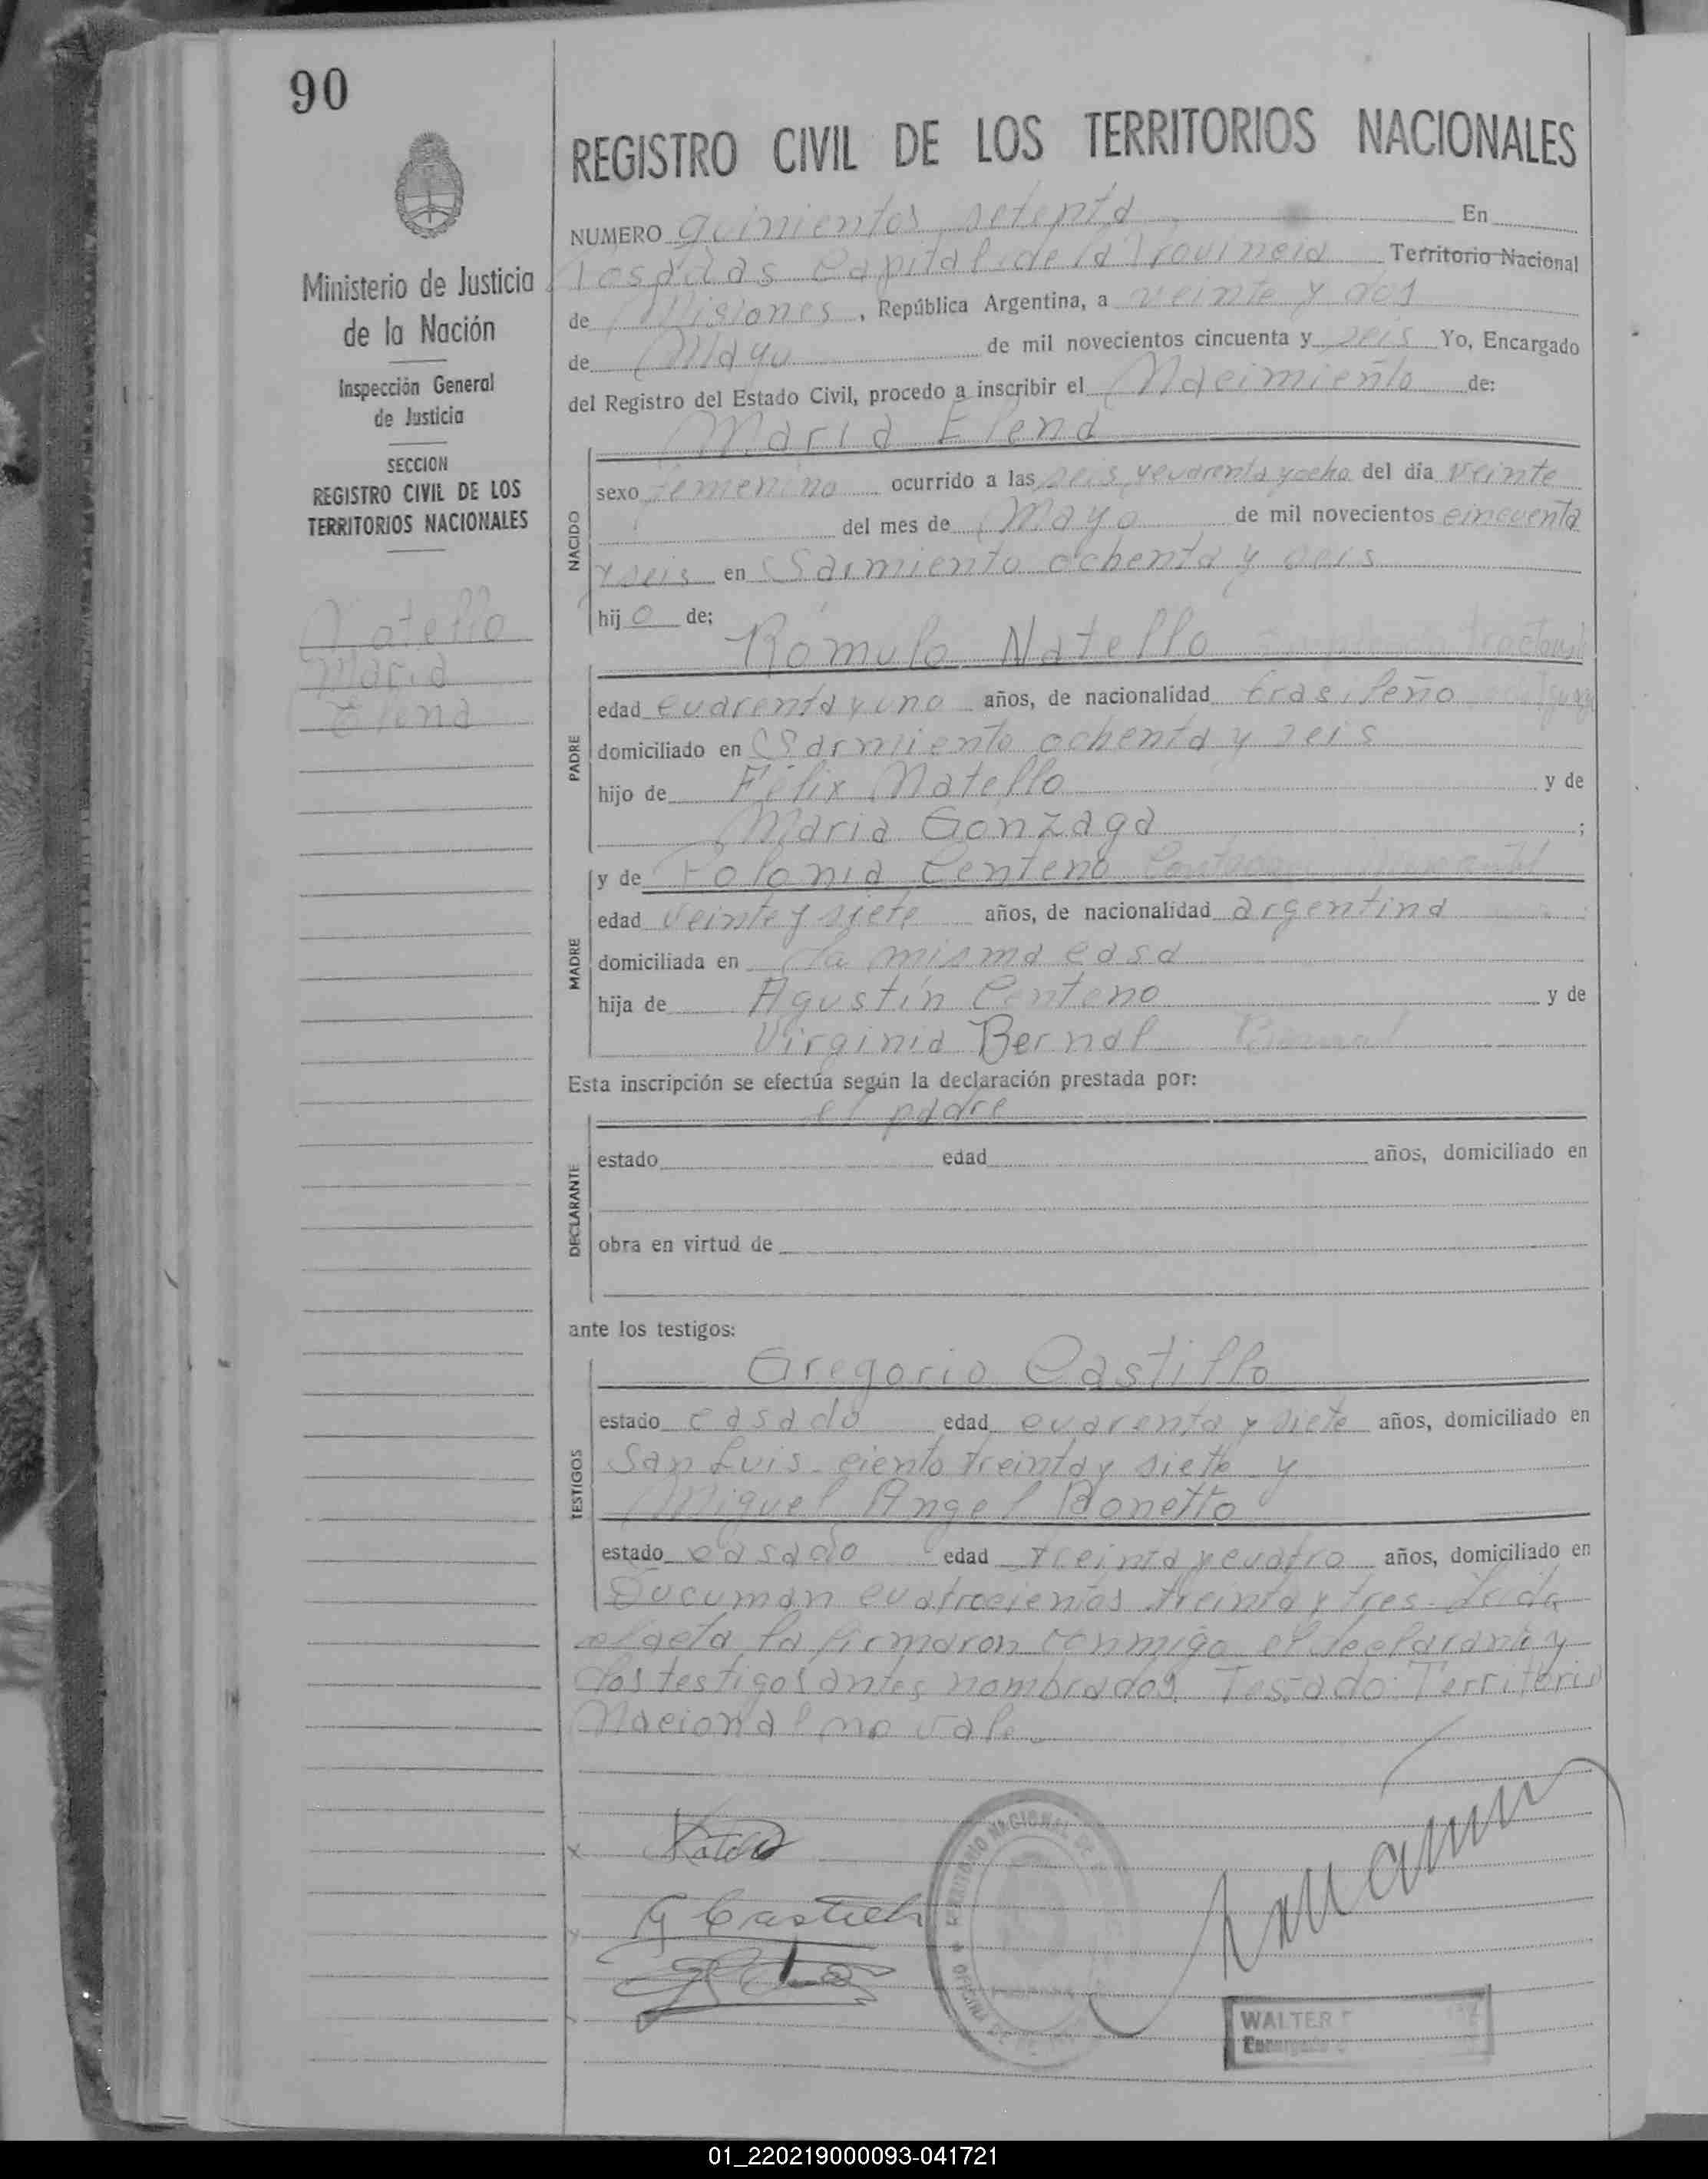 90
REGISTRO CIVIL DE LOS TERRITORIOS NACIONALES
NUMERO quinientos setenta En
Posadas Capital de la Provincia Territorio Nacional
de Misiones, República Argentina, a veinte y dos
de Mayo de mil novecientos cincuenta y seis Yo, Encargado
del Registro del Estado Civil, procedo a inscribir el Nacimiento de:
Maria Elena
Ministerio de Justicia
de la Nación
Inspección General
de Justicia
SECCION
REGISTRO CIVIL DE LOS
TERRITORIOS NACIONALES
Natello
Maria
Elena
NACIDO
sexo femenino ocurrido a las seis y cuarenta y ocho del día veinte
del mes de Mayo de mil novecientos cincuenta
y seis en Sarmiento ochenta y seis
hijo de;
Rómulo Natello
PADRE
edad cuarenta y uno años, de nacionalidad brasileño
domiciliado en Sarmiento ochenta y seis
hijo de Félix Natello y de
Maria Gonzaga ;
y de Polonia Centeno
MADRE
edad veinte y siete años, de nacionalidad argentina
domiciliada en la misma casa
hija de Agustín Centeno y de
Virginia Bernal Bernal
Esta inscripción se efectúa según la declaración prestada por:
el padre
DECLARANTE
estado edad años, domiciliado en
obra en virtud de
ante los testigos:
Gregorio Castillo
TESTIGOS
estado casado edad cuarenta y siete años, domiciliado en
San Luis ciento treinta y siete y
Miguel Angel Bonetto
estado casado edad treinta y cuatro años, domiciliado en
Tucuman cuatrocientos treinta y tres. Leida
el acta la firmaron conmigo el declarante y
los testigos antes nombrados. Testado: Territorio
Nacional no vale
G Castillo
NACIONAL DE
OFICINA
WALTER
Encargado
01_220219000093-041721